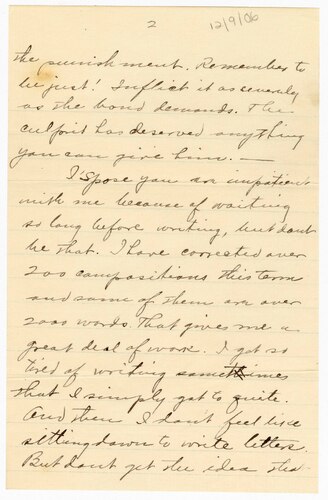 2
12/9/06
the punishment. Remember to
be just! Inflict it as severely
as the bond demands. The
culprit has deserved anything
you can give him. —
I 'spose you are impatient
with me because of waiting
so long before writing, but dont
be that. I have corrected over
200 compositions this term
and some of them are over
2000 words. That gives me a
great deal of work. I get so
tired of writing sometimes
that I simply got to quite.
And then I don't feel like
sitting down to write letters.
But dont get the idea tha-